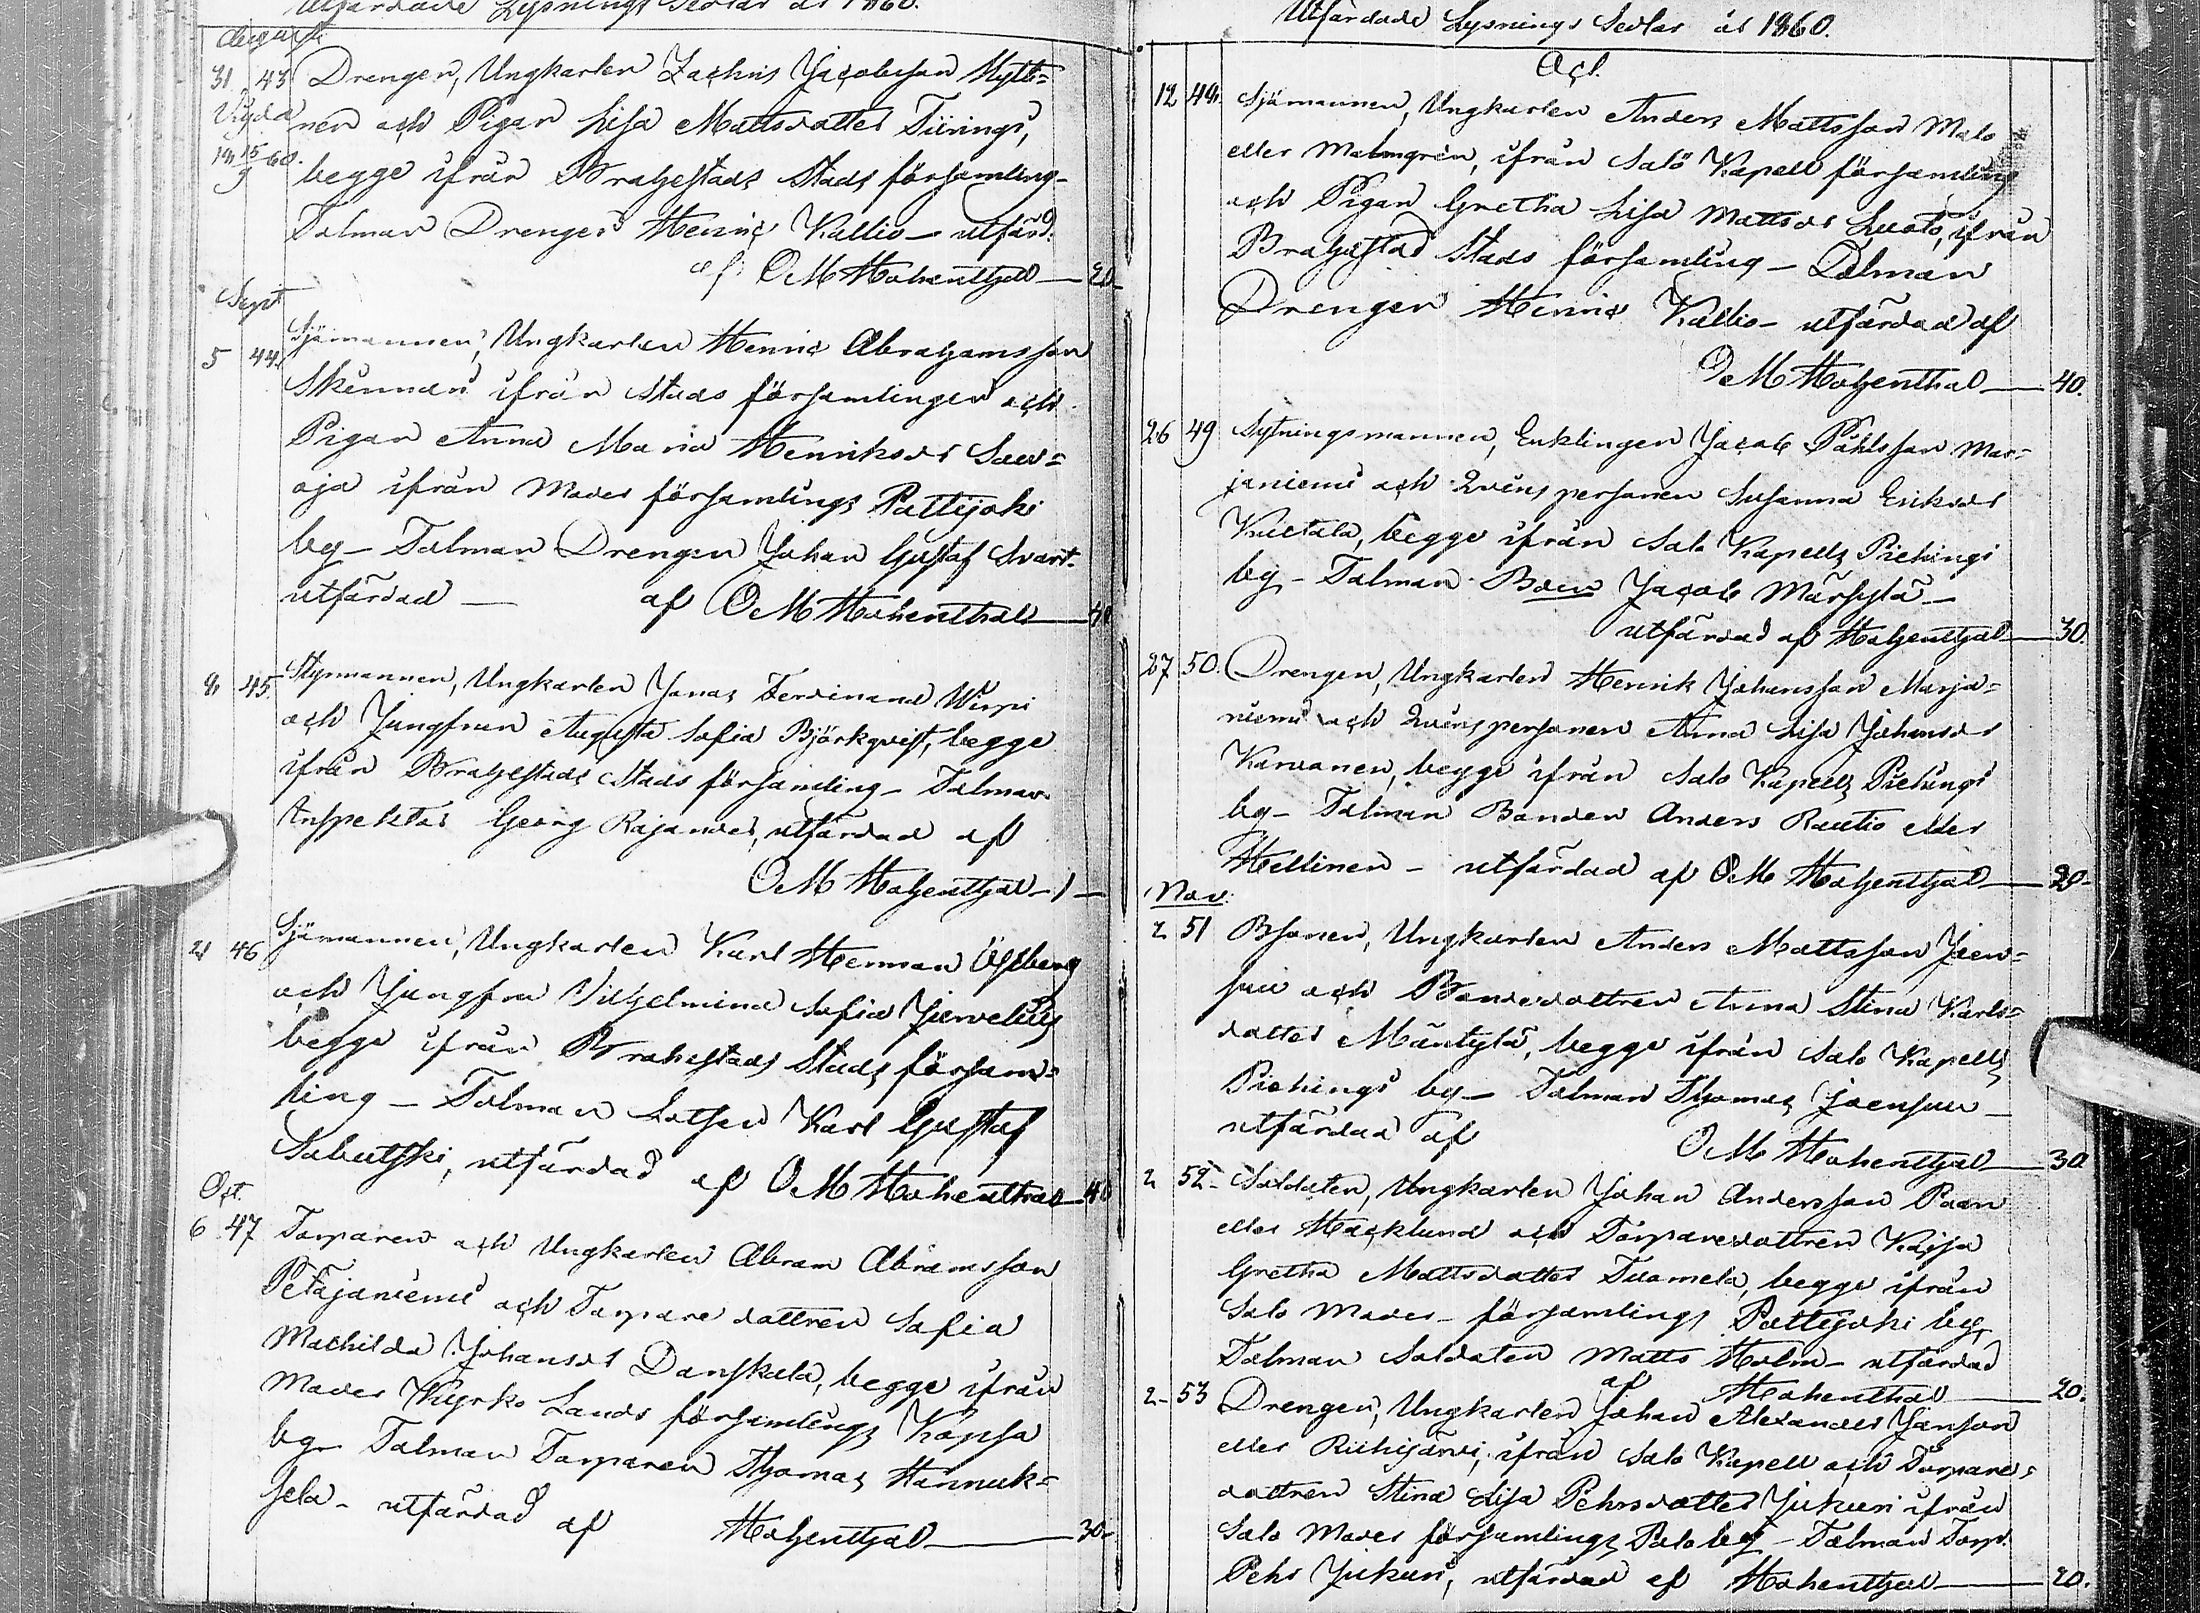 Utfärdade Lysnings Sedlar år 1860.
Augusti
31 43 Drengen, Ungkarlen Zachris Jacobsson Mytti=
Vigda nen och Pigan Lisa Mattsdotter Tiirings,
18 15/9 60. begge ifrån Brahestads Stads församling_
Talman Drengen Henric Kallio_ utfärd.
af OM Hohenthal — 20_
Sept
5 44. Sjömannen, Ungkarlen Henric Abrahamsson
Skinnari ifrån Stads församlingen och
Pigan Anna Maria Henriksdr Saw=
oja ifrån Moder församlings Pattijoki
by_ Talman Drengen Johan Gustaf Svart.
utfärdad — af OM Hohenthal — 40
8 45. Styrmannen, Ungkarlen Jonas Ferdinand Wirpi
och Jungfrun Augusta Sofia Björkqvist, begge
ifrån Brahestads Stads församling_ Talman
Inspektor Georg Rajander, utfärdad af
OM Hohenthal _ 1 _
21 46 Sjömannen, Ungkarlen Karl Herman Öhberg
och Jungfru Vilhelmina Sofia Jurvelius
begge ifrån Brahestads Stads försam=
ling _ Talman Lotsen Karl Gustaf
Sabutski, utfärdad af OM Hohenthal 40
Oct.
6 47 Torparen och Ungkarlen Abram Abramsson
Petäjäniemi och Torpare dottren Sofia
Mathilda Johansdr Danskala, begge ifrån
Moder Kyrko Lands församlings Kopsa
by_ Talman Torparen Thomas Hannuk=
sela_ utfärdad af Hohenthal — 30_
Utfärdade Lysnings Sedlar år 1860.
Oct.
12 48. Sjömannen, Ungkarlen Anders Mattsson Malo
eller Malmgrén, ifrån Salo Kapell församling
och Pigan Gretha Lisa Mattsdr Luoto, ifrån
Brahestad Stads församling _ Talman
Drengen Henric Kallio_ utfärdad af
OM Hohenthal — 40.
26 49 Sytningsmannen, Enklingen Jacob Påhlsson Mar=
janiemi och Qvinspersonen Susanna Eriksdr
Knuutila, begge ifrån Salo Kapells Piehingi
by _ Talman Bonden Jacob Märsylä _
utfärdad af Hohenthal — 30.
27 50. Drengen, Ungkarlen Henrik Johansson Marja=
niemi och Qvinspersonen Anna Lisa Johansdr
Karvonen, begge ifrån Salo Kapells Piehingi
by_ Talman Bonden Anders Rautio eller
Hellinen _ utfärdad af OM Hohenthal — 20_
Nov.
2 51 Bsonen, Ungkarlen Anders Mattsson Joen=
suu och Bondedottren Anna Stina Karls=
dotter Mäntylä, begge ifrån Salo Kapells
Piehingi by_ Talman Thomas Joensuu _
utfärdad af OM Hohenthal — 30
2 52_ Soldaten, Ungkarlen Johan Andersson Paan
eller Hacklund och Torparedottren Kajsa
Gretha Mattsdotter Tuomela, begge ifrån
Salo Moder_ församlings Pattijoki by,
Talman Soldaten Matts Holm_ utfärdad
af Hohenthal — 20.
2_ 53 Drengen, Ungkarlen Johan Alexander Janson
eller Riihijärvi, ifrån Salo Kapell och Torpare,
dottren Stina Lisa Pehrsdotter Jukuri ifrån
Salo Moder församlings Palo by _ Talman Torp.
Pehr Jukuri, utfärdad af Hohenthal — 20.